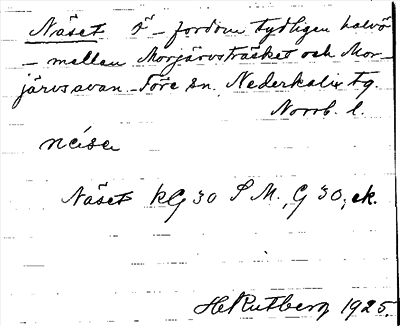 Näset Ö – fordom tydligen halvö
– mellan Morjärvsträsket och Mor-
järvsavan. Töre sn. Nederkalix tg
Norrb. l.
näse
Näset kG 30 S M., G 30, ek.
H Rutberg 1925.